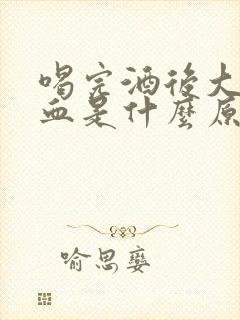 喝完酒後大
血是什麼原
喻思孌